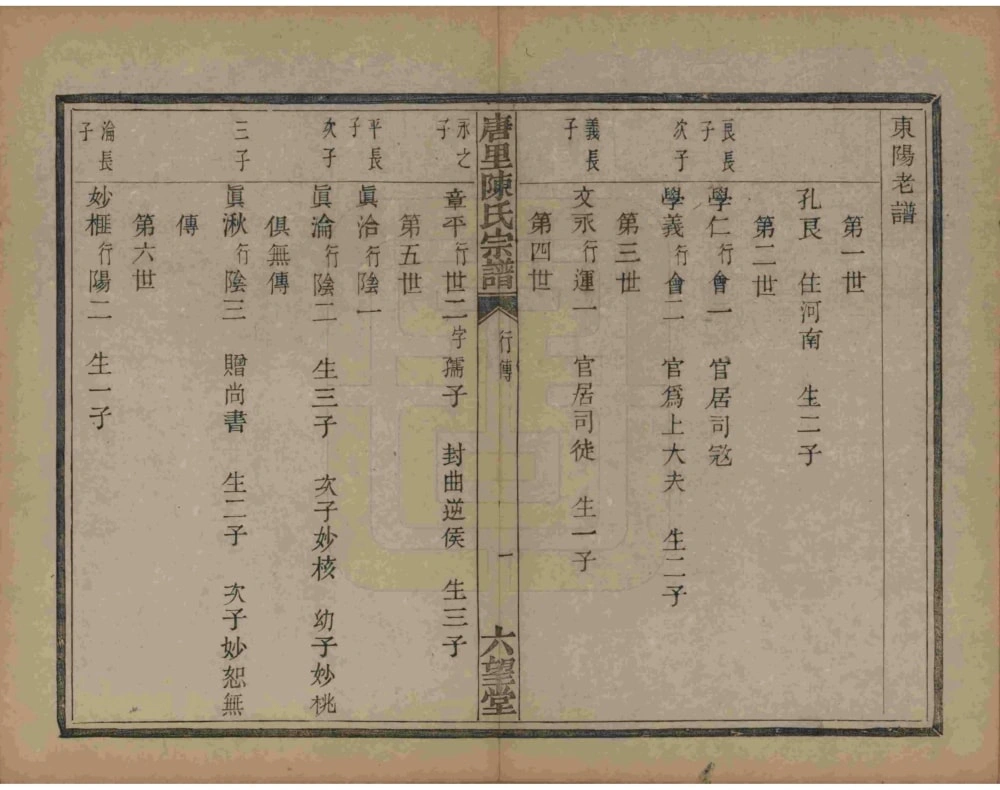 東陽老譜
第一世
孔艮 住河南 生二子
第二世
艮長子 學仁 行會一 官居司宼
次子 學義 行會二 官爲上大夫 生二子
第三世
義長子 文永 行運一 官居司徒 生一子
第四世
唐里陳氏宗譜 行傳 一 六望堂
永之子 章平 行世二 字孺子 封曲逆侯 生三子
第五世
平長子 眞治 行陰一
次子 眞淪 行陰二 生三子 次子妙核 幼子妙桃
俱無傳
三子 眞湫 行陰三 贈尚書 生二子 次子妙恕無
傳
第六世
淪長子 妙榧 行陽二 生一子